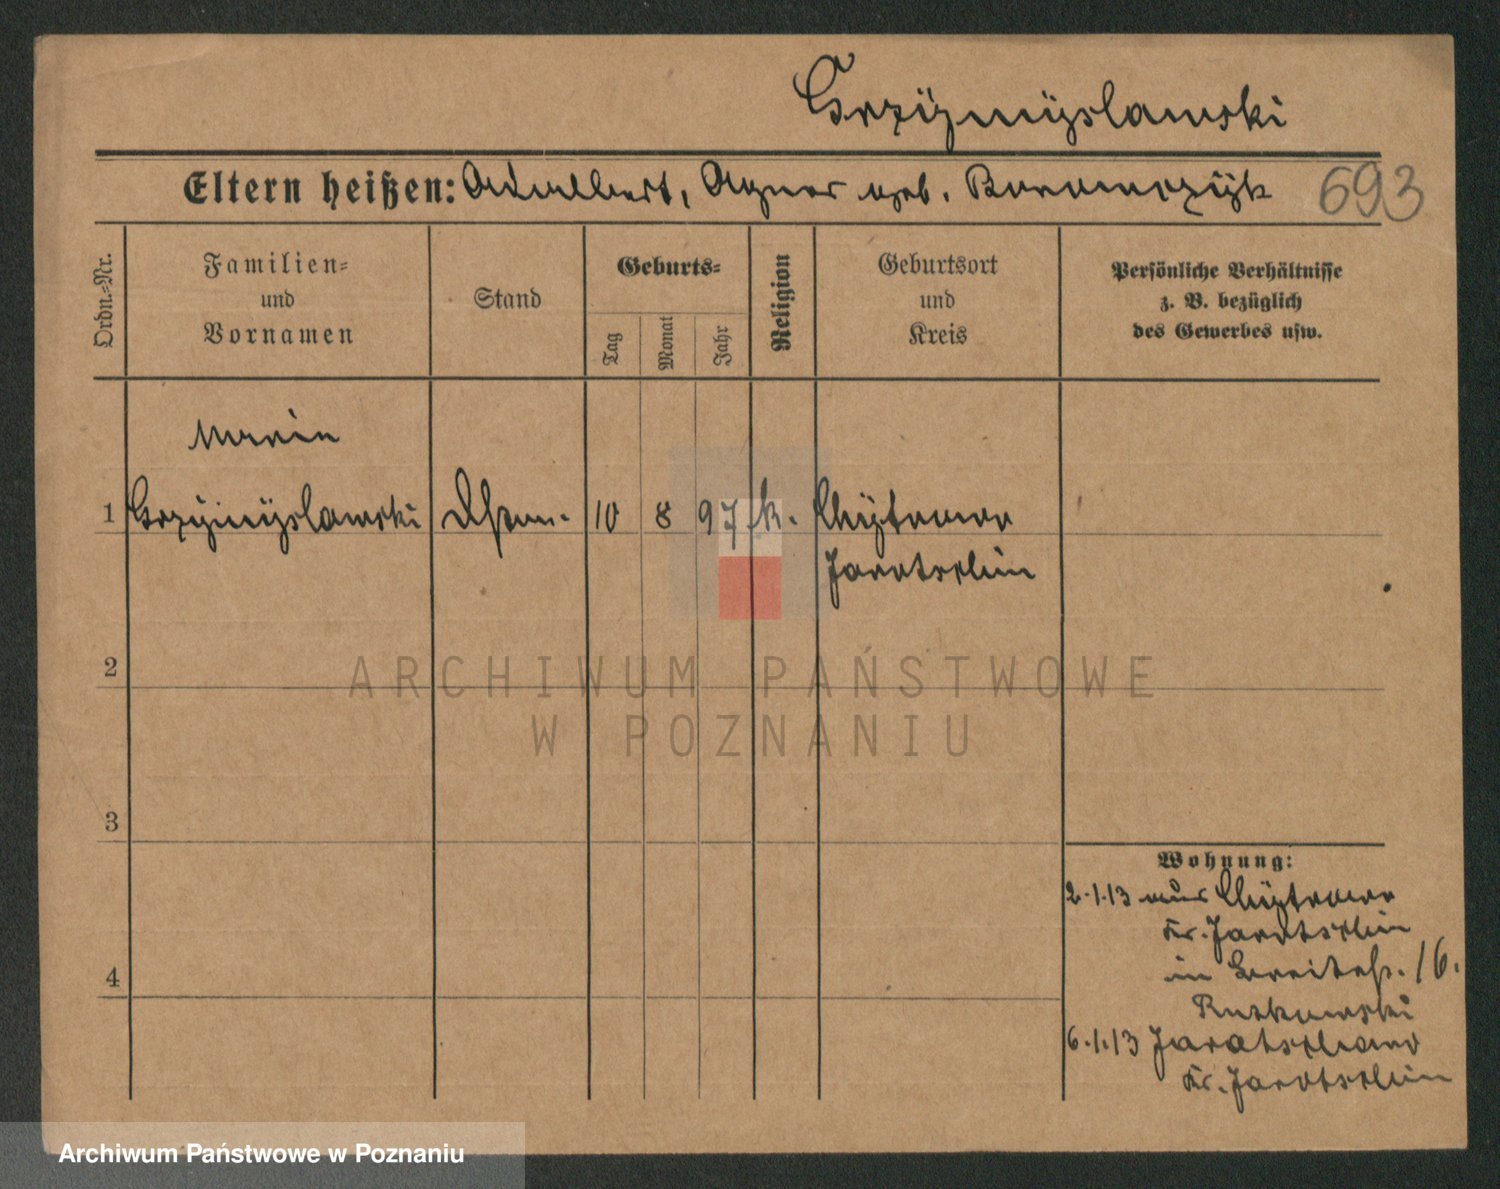 Grzÿmÿslawski
Eltern heißen: Adalbert, Agnes geb.
693
Ordn.=Nr.
Familien=
und
Vornamen
Stand
Geburts=
Tag
Monat
Jahr
Religion
Geburtsort
und
Kreis
Persönliche Verhältnisse
z. B. bezüglich
des Gewerbes usw.
1
Grzÿmÿslawski
10 8 97 k.
Chÿtrowo
Jarotschin
2
3
4
Wohnung:
2.1.13 aus Chÿtrowo
Kr. Jarotschin
in Breitestr. 16.
Rutkowski
6.1.13
Kr. Jarotschin
ARCHIWUM PAŃSTWOWE
W POZNANIU
Archiwum Państwowe w Poznaniu